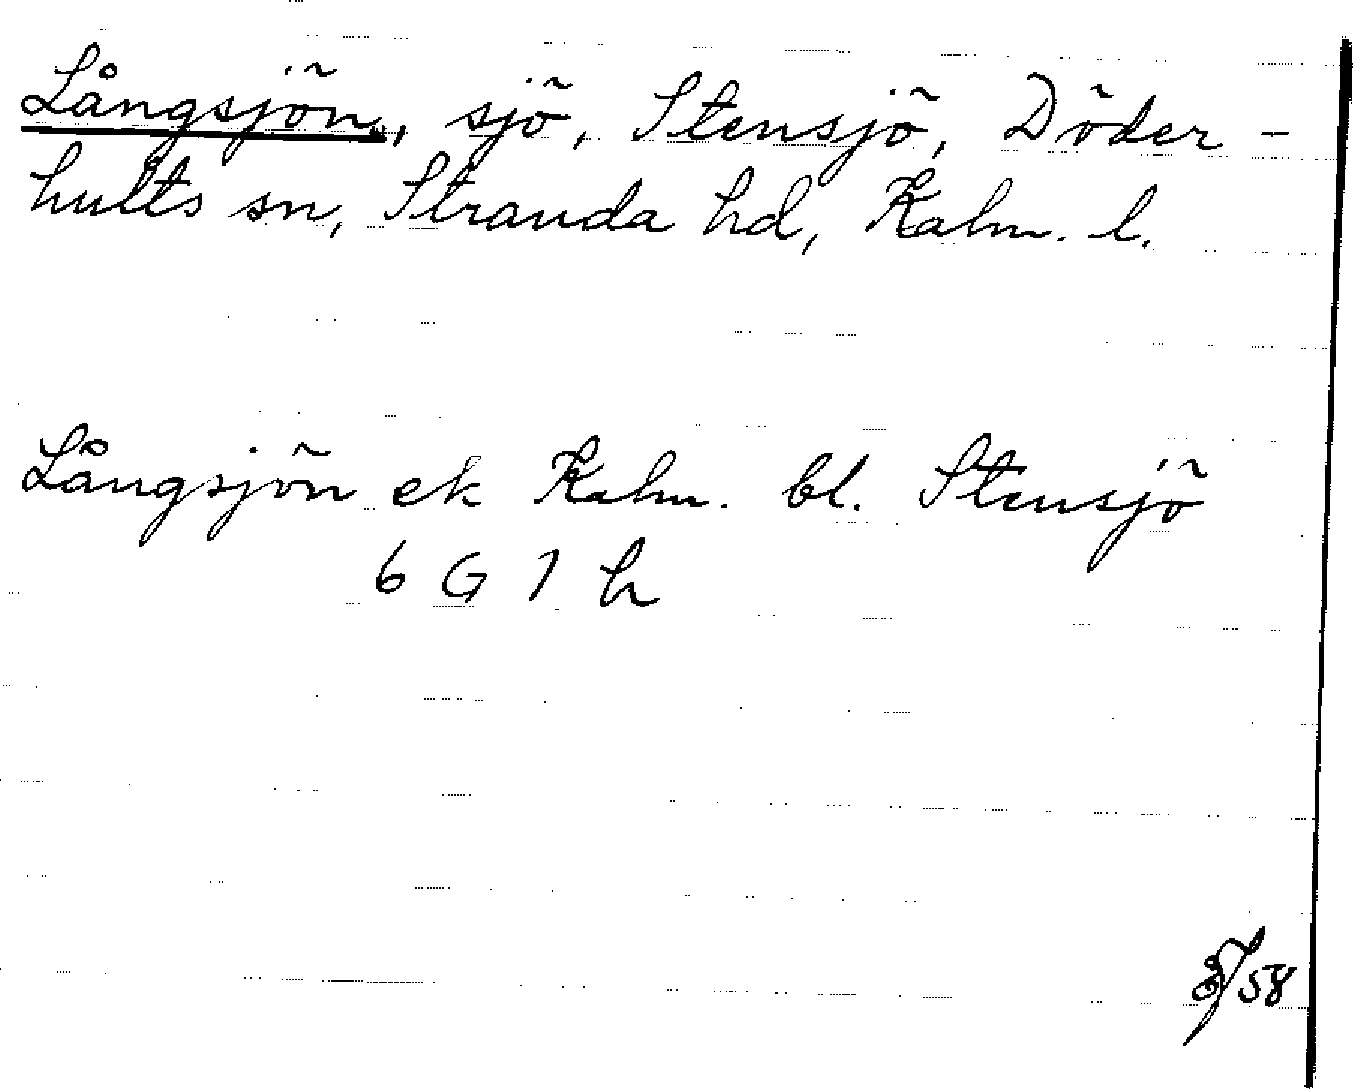 Långsjön, sjö, Stensjö, Döder-
hults sn, Stranda hd, Kalm. l.
Långsjön ek Kalm. bl. Stensjö
6 G 7 h
/58